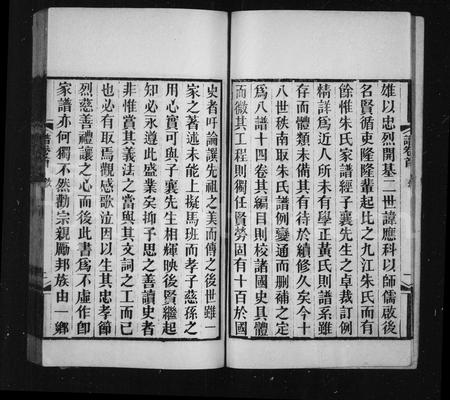 雄以忠烈開基二世諱應科以師儒啟後
名賢循吏隆隆輩起比之九江朱氏而有
餘惟朱氏家譜經子襄先生之卓裁訂例
精詳爲近人所未有學正黃氏則譜系雖
存而體類未備其有待於續修久矣今十
八世秩南取朱氏譜例變通而刪補之定
爲八譜十四卷其編目則校諸國史具體
而微其工程則獨任賢勞固有十百於國
史者吁論譔先祖之美而傳之後世雖一
家之著述未能上擬馬班而孝子慈孫之
用心實可與子襄先生相輝映後賢繼起
知必永遵此盛業矣抑予思之善讀史者
非惟賞其義法之當與其文詞之工而已
也必有取焉觀感歌泣因以生其忠孝節
烈慈善禮讓之心而後此書爲不虛作卽
家譜亦何獨不然勸宗親勵邦族由一鄉